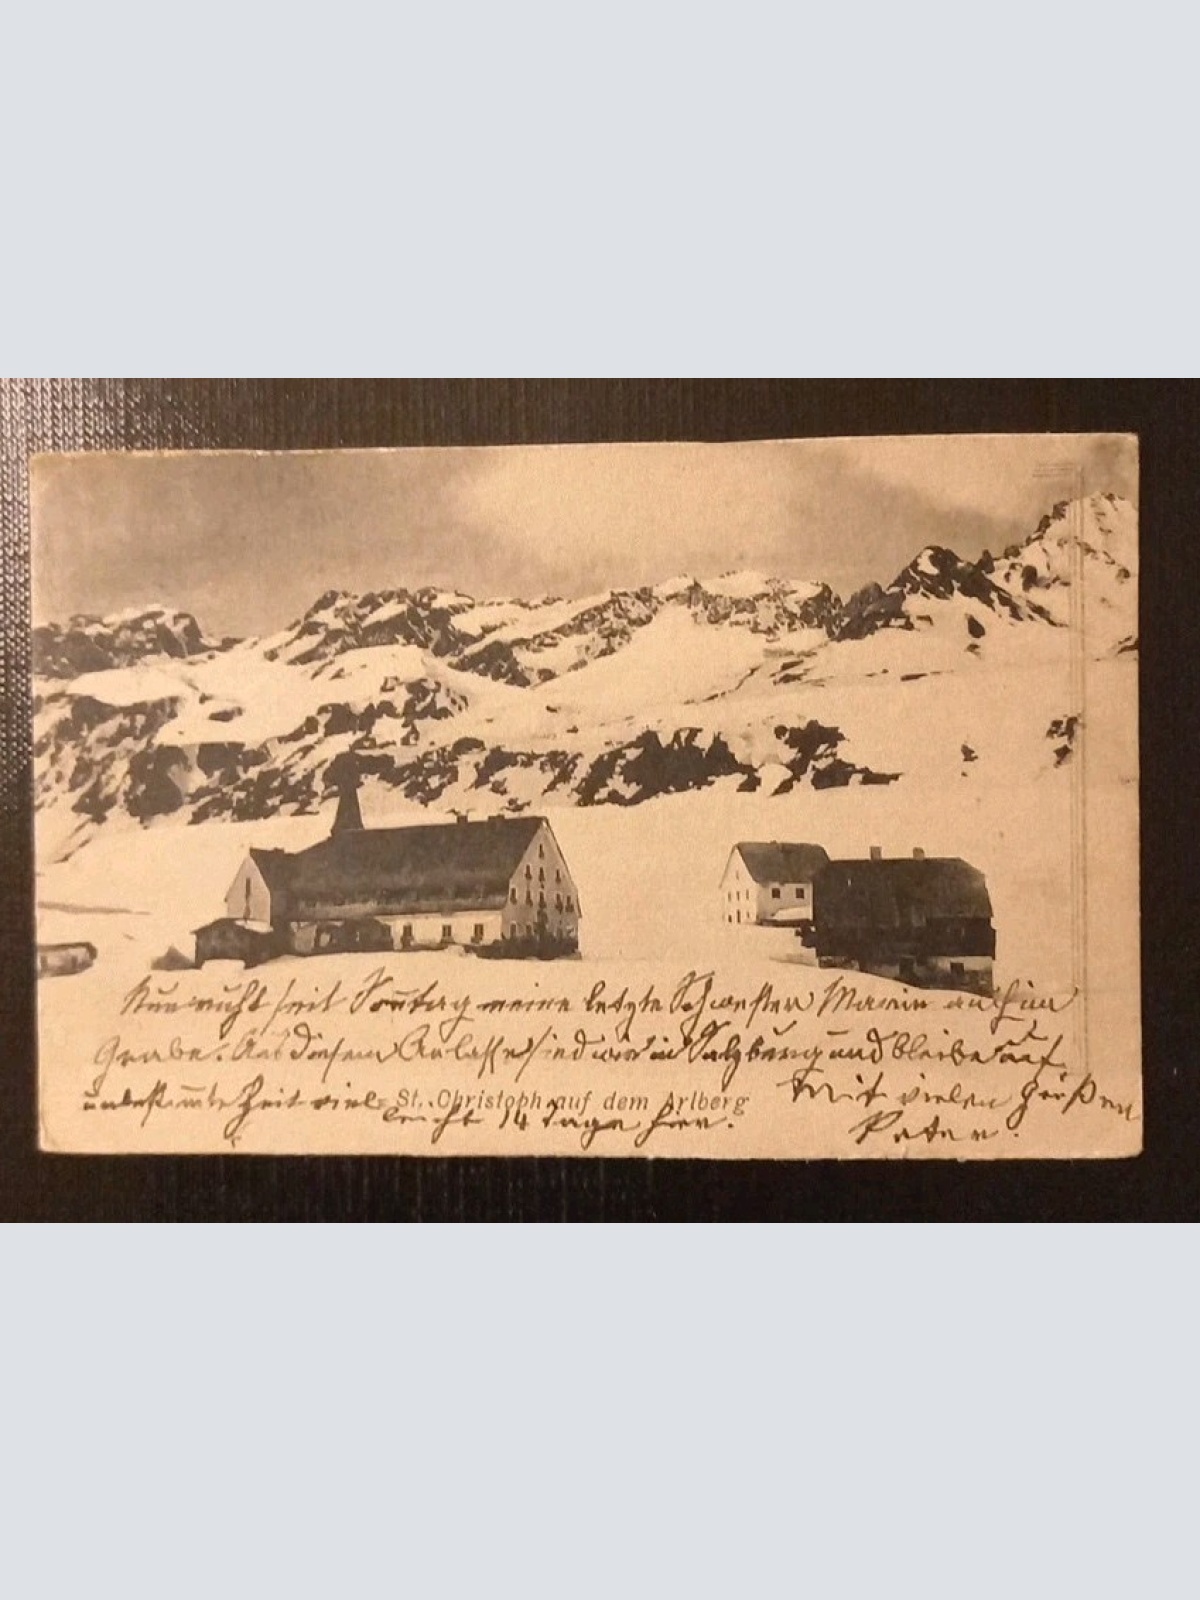 Nun ruht seit Sonntag meine letzte Schwester Marie auch im
Grabe. Aus diesem Anlasse sind wir in Salzburg und bleiben auf
unbestimmte Zeit viel-
leicht 14 Tage hier.
St. Christoph auf dem Arlberg
Mit vielen Grüßen
Peter.